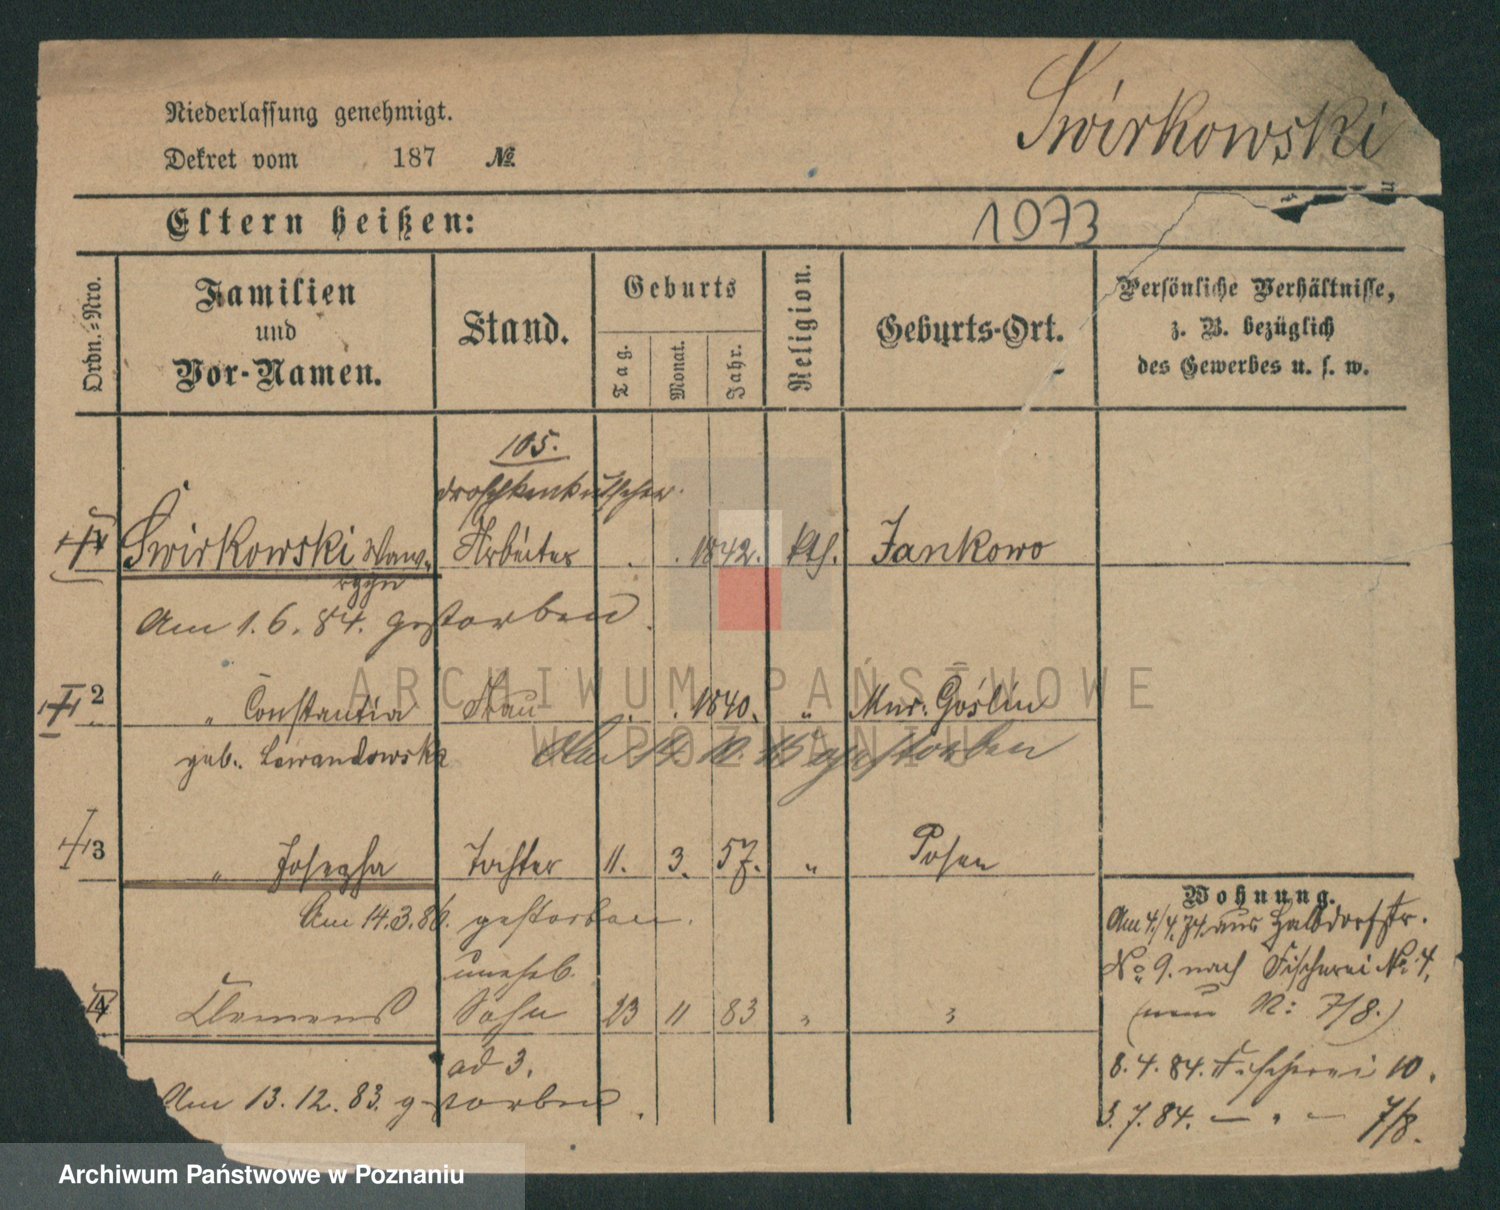 Niederlassung genehmigt.
Dekret vom 187 No.
Świrkowski
Eltern heißen:
1073
Ordn.-Nro.
Familien
und
Vor-Namen.
Stand.
Geburts
Tag.
Monat.
Jahr.
Religion.
Geburts-Ort.
Persönliche Verhältnisse,
z. B. bezüglich
des Gewerbes u. s. w.
105.
Droschkenkutscher
1 Świrkowski Waw- Arbeiter . . 1842. kth. Jankowo
rzyn
Am 1.6.84. gestorben.
2 " Constantia Frau . . 1840. " Mur. Goślin
geb. Lewandowska
Am 14. 10. gestorben
3 " Josepha Tochter 11. 3. 57. " Posen
Am 14.3.86. gestorben.
uneheb.
4 Clemens Sohn 23 11 83 " "
ad 3.
Am 13.12.83. gestorben.
Wohnung.
Am 4./4.74. aus Halbdorfstr.
No. 9. nach Fischerei No. 4.
(neue N: 7/8.)
8.4.84. Fischerei 10.
3.7.84. — " — 7/8.
ARCHIWUM PAŃSTWOWE
W POZNANIU
Archiwum Państwowe w Poznaniu